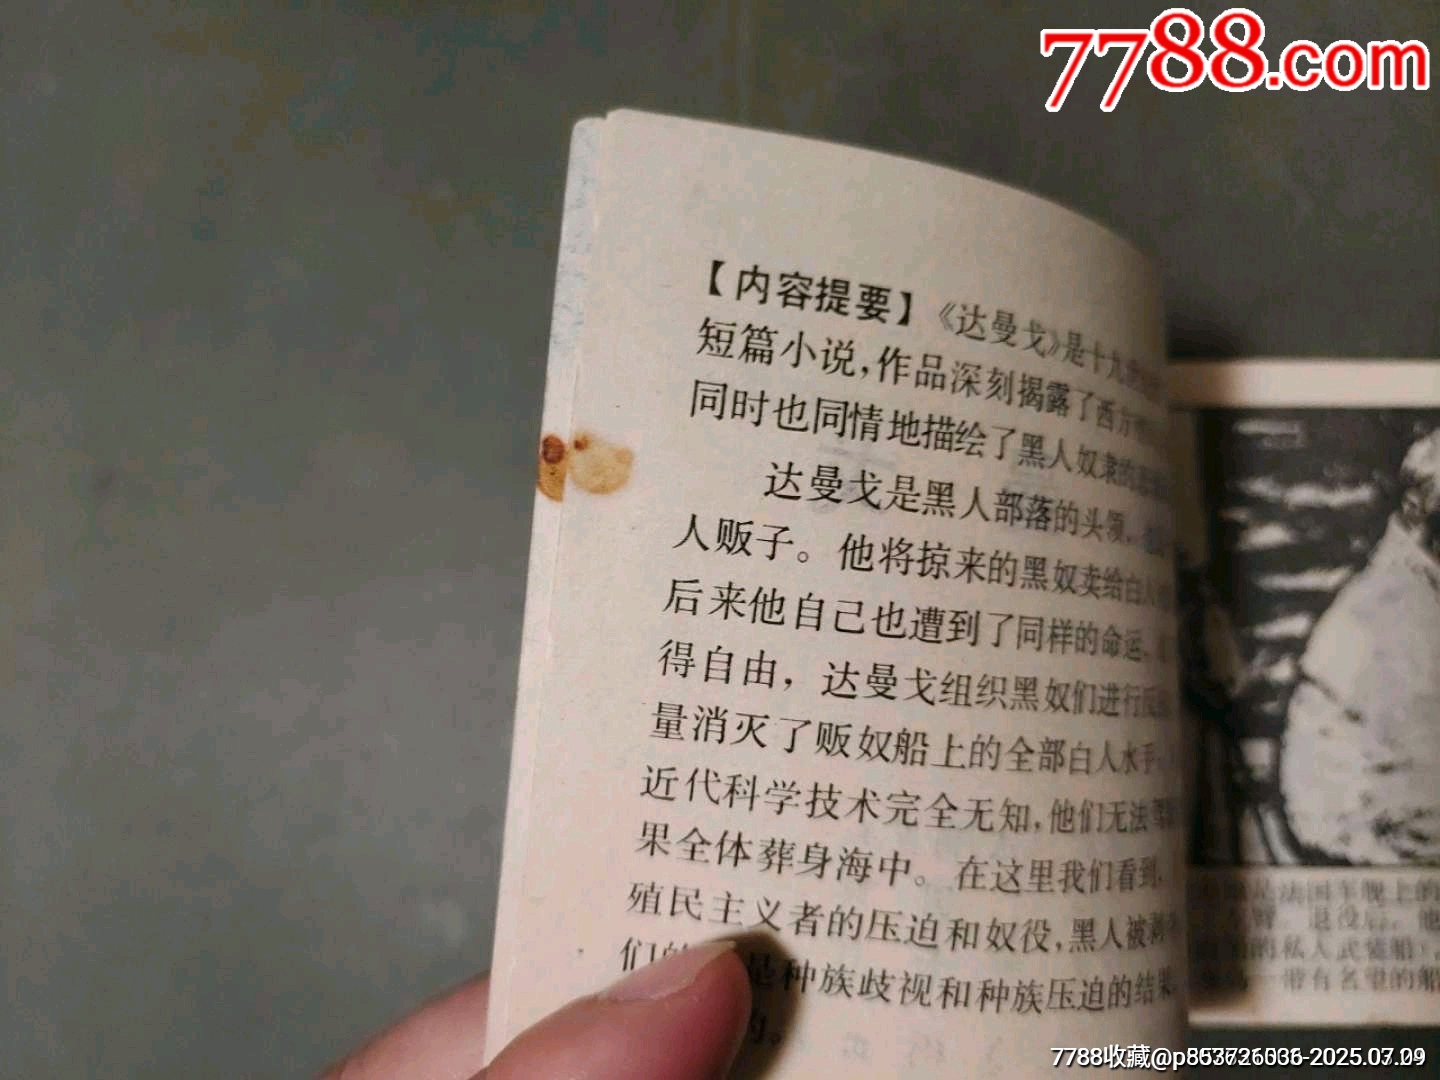 7788.com
【内容提要】《达曼戈》是十九世
短篇小说,作品深刻揭露了西方
同时也同情地描绘了黑人奴隶的悲
达曼戈是黑人部落的头领,
人贩子。他将掠来的黑奴卖给白人
后来他自己也遭到了同样的命运。
得自由,达曼戈组织黑奴们进行反
量消灭了贩奴船上的全部白人水手。
近代科学技术完全无知,他们无法驾
果全体葬身海中。在这里我们看到,
殖民主义者的压迫和奴役,黑人被剥
们的 是种族歧视和种族压迫的结果
的。
是法国军舰上的
退役后,他
的私人武装船)
一带有名望的船
7788收藏@p853726036-2025.07.29